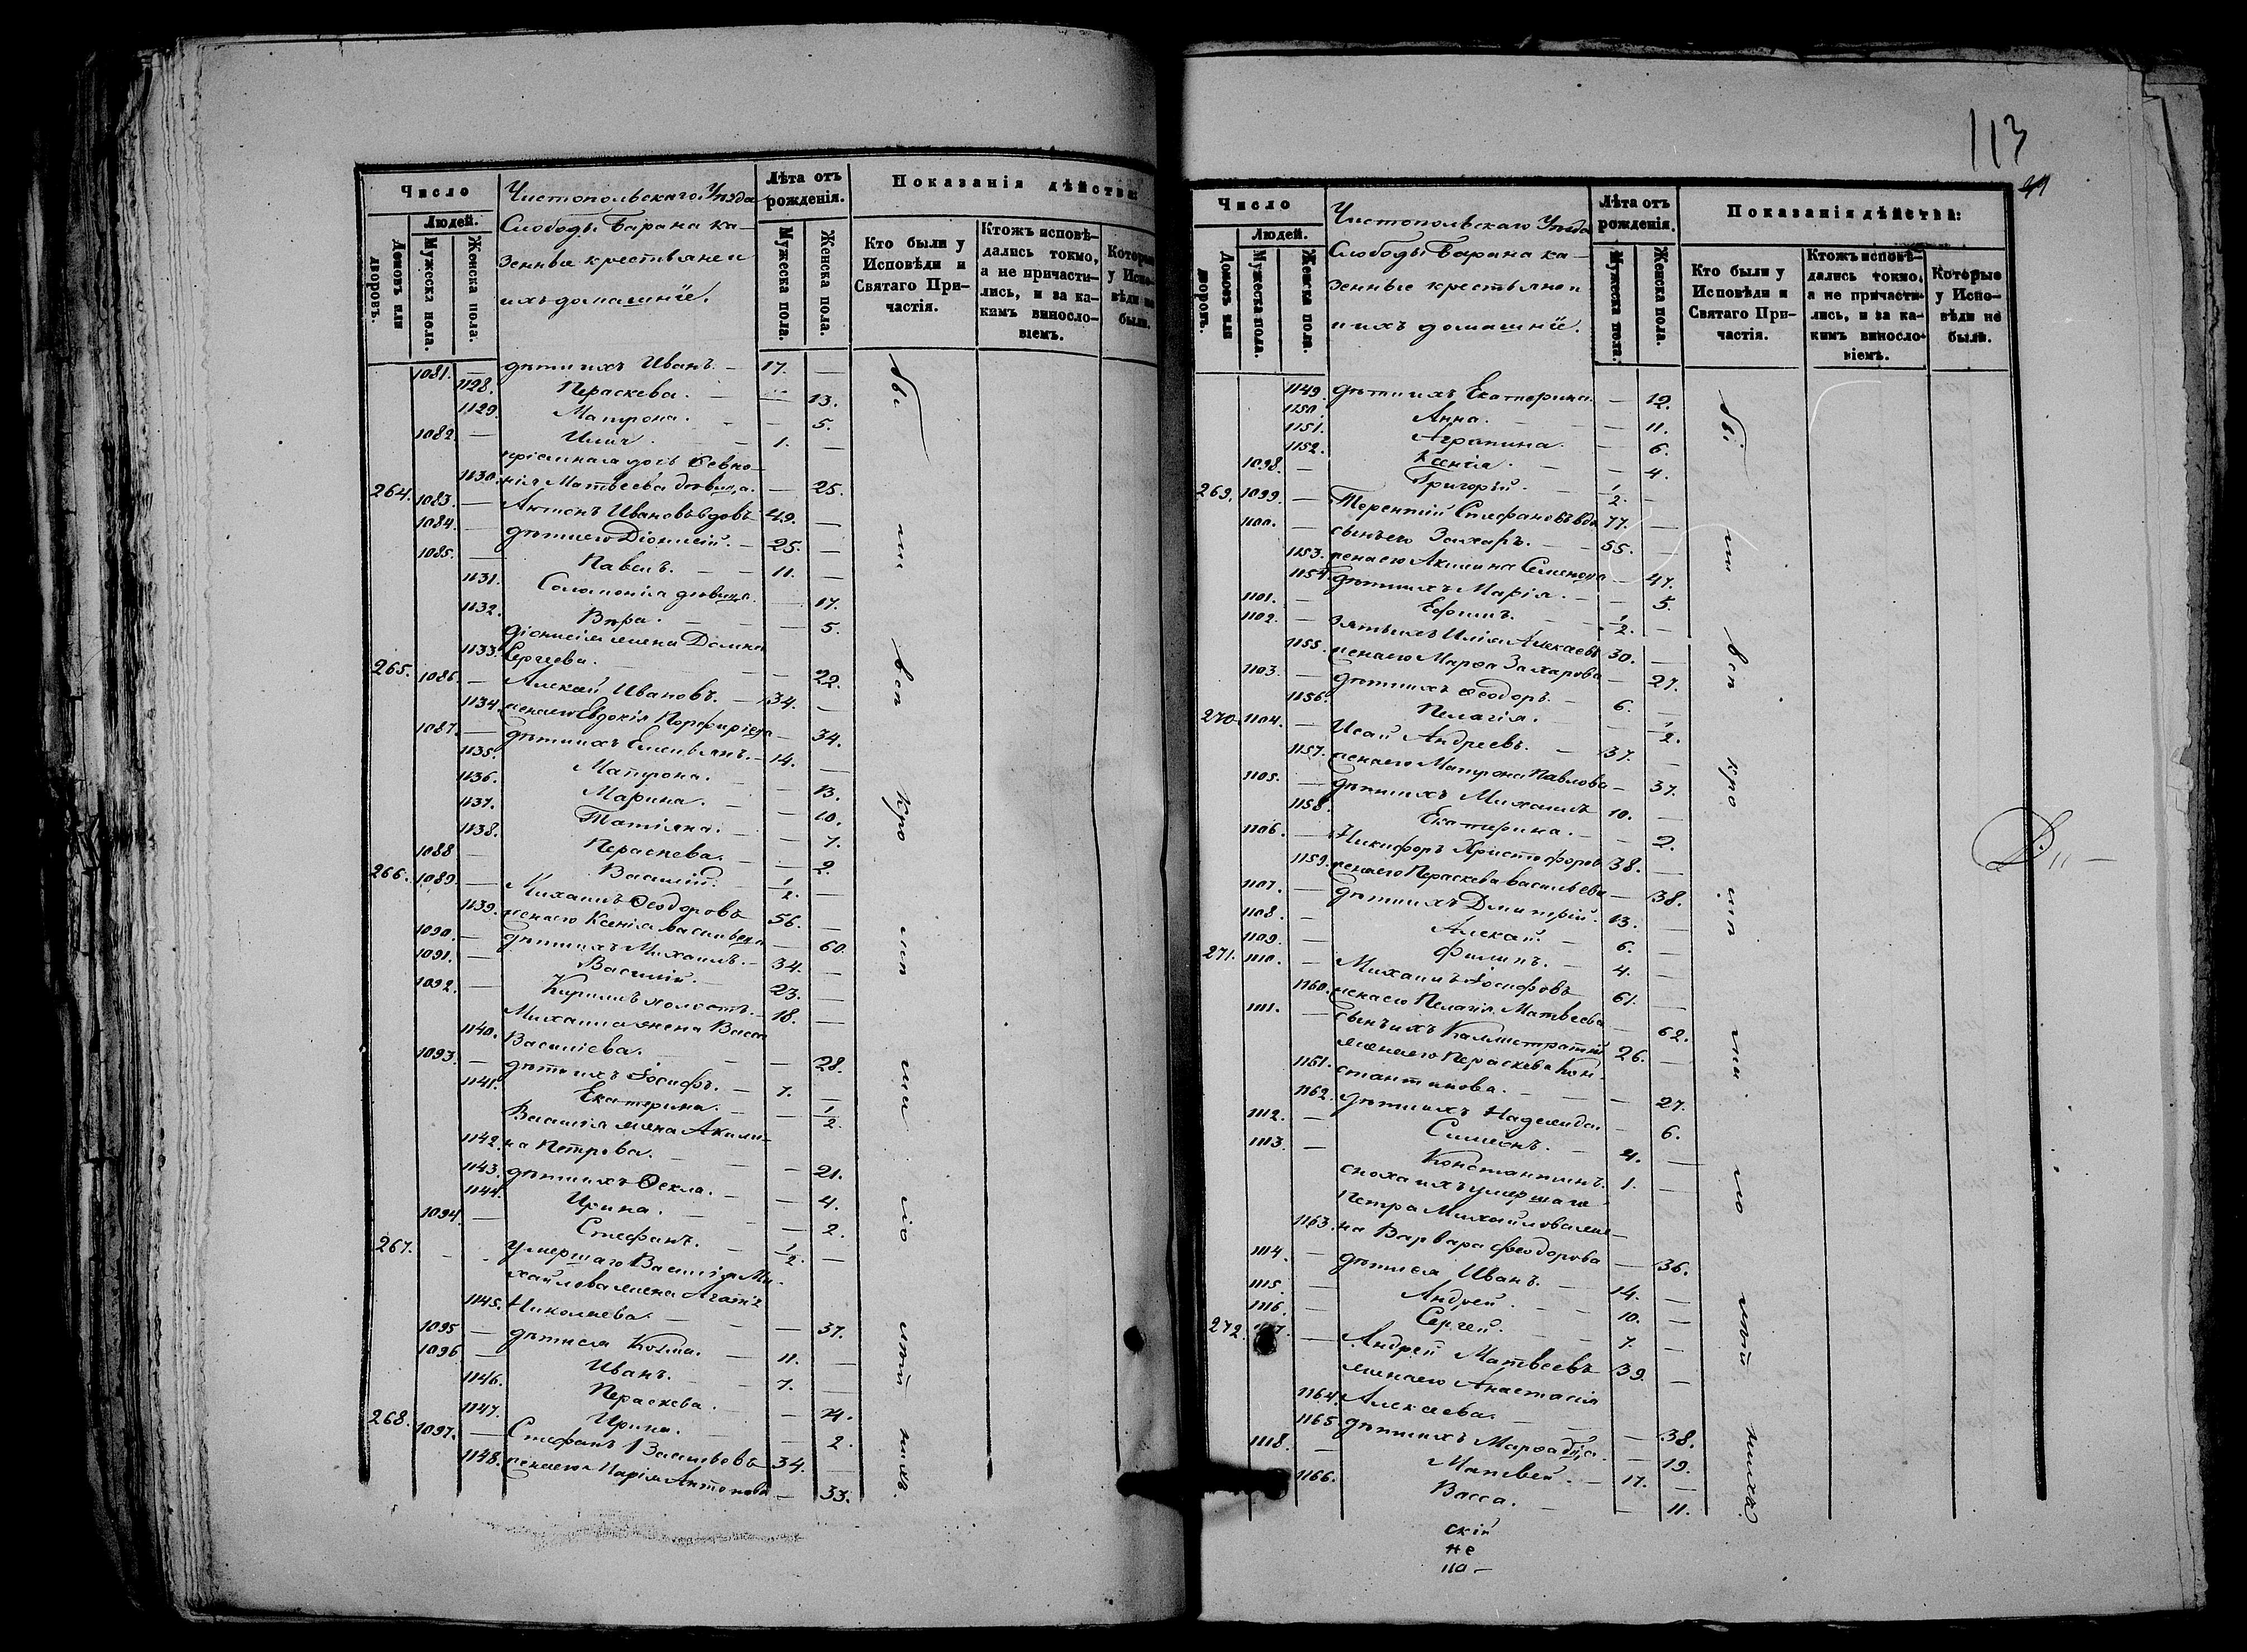 Число
Людей.
Домовъ или дворовъ.
Мужеска пола.
Женска пола.
Чистопольскаго Уѣзда
Слободы Барана ка-
зенные крестьяне и
ихъ домашніе.
Лѣта отъ рожденія.
Мужеска пола.
Женска пола.
Показанія дѣйства:
Кто были у Исповѣди и Святаго При-частія.
Ктожъ исповѣ-дались токмо, а не причасти-лись, и за ка-кимъ виносло-віемъ.
Которые у Испо-вѣди не были.
1081. — дѣти ихъ Иванъ. — 17. —
1128. Параскева. — — 13.
1129. Матрона. — — 5.
1082. — 1. —
пріемная дочь Ѳевро-
1130. нія Матвеева дѣвица. — 25.
264. 1083. — Антонъ Ивановъ вдовъ 49. —
1084. — дѣти его Діонисій. — 25. —
1085. — Павелъ. — — 11. —
1131. Соломонія дѣвица. — 17.
1132. Вѣра. — — 5.
Діонисія жена Домна
1133. Сергеева. — — 22.
265. 1086. — Алексей Ивановъ. — 34. —
1134. жена его Евдокія Порфиріева — 34.
1087. — дѣти ихъ Емельянъ. — 14. —
1135. Матрона. — — 13.
1136. Марина. — — 10.
1137. Татіяна. — — 7.
1138. Параскева. — — 2.
1088 — Василій. 1/2. —
266. 1089. — Михаилъ Ѳеодоровъ 56. —
1139. жена его Ксенія Васильева — 60.
1090. — дѣти ихъ Михаилъ. — 34. —
1091. — Василій. — 23. —
1092. — Кириллъ холостъ. — 18. —
Михаила жена Васса
1140. Василіева. — — 28.
1093. — дѣти ихъ Іосифъ. — 7. —
1141. Екатерина. — — 1/2.
Василія жена Акили-
1142. на Петрова. — — 21.
1143. дѣти ихъ Ѳекла. — — 4.
1144. Ирина. — — 2.
1094. — Стефанъ. — 1/2. —
267. — умершаго Василія Ми-
хайлова жена Агаѳія
1145. Николаева. — — 37.
1095 — дѣти ея Козма. — 11. —
1096. — Иванъ. — 7. —
1146. Параскева. — — 4.
1147. Ирина. — — 2.
268. 1097. — Стефанъ Васильевъ 34. —
1148. жена его Марія Антонова — 33.
113
Число
Людей.
Домовъ или дворовъ.
Мужеска пола.
Женска пола.
Чистопольскаго Уѣзда
Слободы Барана ка-
зенные крестьяне и
ихъ домашніе.
Лѣта отъ рожденія.
Мужеска пола.
Женска пола.
Показанія дѣйства:
Кто были у Исповѣди и Святаго При-частія.
Ктожъ исповѣ-дались токмо, а не причасти-лись, и за ка-кимъ виносло-віемъ.
Которые у Испо-вѣди не были.
1149. дѣти ихъ Екатерина. — 12.
1150. Анна. — — 11.
1151. Агрипина. — 6.
1152. Ксенія. — — 4.
1098. — Григорій. — 1/2. —
269. 1099. — Терентий Стефановъ вдо 77. —
1100. — сынъ его Захаръ. — 55. —
1153. жена его Акилина Семенова — 47.
1154. дѣти ихъ Марія. — — 5.
1101. — Ефимъ. — 1/2. —
1102. — зять ихъ Илія Алексаевъ 30. —
1155. жена его Марѳа Захарова — 27.
1103. — дѣти ихъ Ѳеодоръ. — 6. —
1156. Пелагія. — — 1/2.
270. 1104. — Исай Андреевъ. — 37. —
1157. жена его Матрона Павлова — 37.
1105. — дѣти ихъ Михаилъ 10. —
1158. Екатерина. — — 2.
1106. — Никифоръ Христофоров 38. —
1159. жена его Параскева Васильева — 38.
1107. — дѣти ихъ Димитрій. 13. —
1108. — Алексай. — 6. —
1109. — Филипъ. — 4. —
271. 1110. — Михаилъ Іосифовъ 61. —
1160. жена его Пелагія Матвеева — 62.
1111. — сынъ ихъ Каллистратъ 26. —
жена его Параскева Кон-
1161. стантинова. — — 27.
1162. дѣти ихъ Надежда — 6.
1112. — Симеонъ. — 4. —
1113. — Константинъ. 1. —
сноха ихъ умершаго
Петра Михайлова же-
1163. на Варвара Ѳеодорова — 36.
1114. — дѣти ея Иванъ. — 14. —
1115. — Андрей. — 10. —
1116. — Сергей. — 7. —
272. — Андрей Матвеевъ 39. —
жена его Анастасія
1164. Алексаева. — — 38.
1165. дѣти ихъ Марѳа — 19.
1118. — Матвей. — 17. —
1166. Васса. — — 11.
скій
не